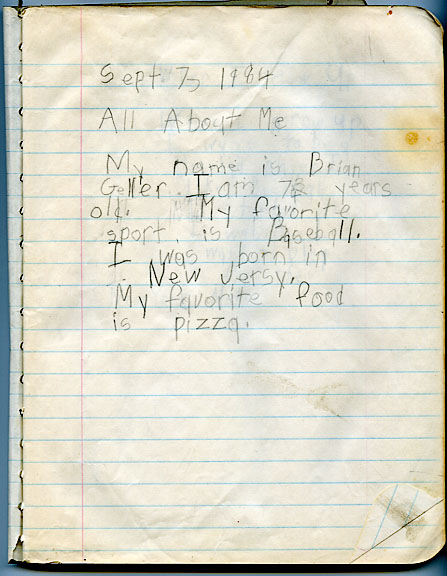 Sept 7, 1984
All About Me
My name is Brian
Geller. I am 7½ years
old. My favorite
sport is Baseball.
I was born in
New Jersy.
My favorite food
is pizza.